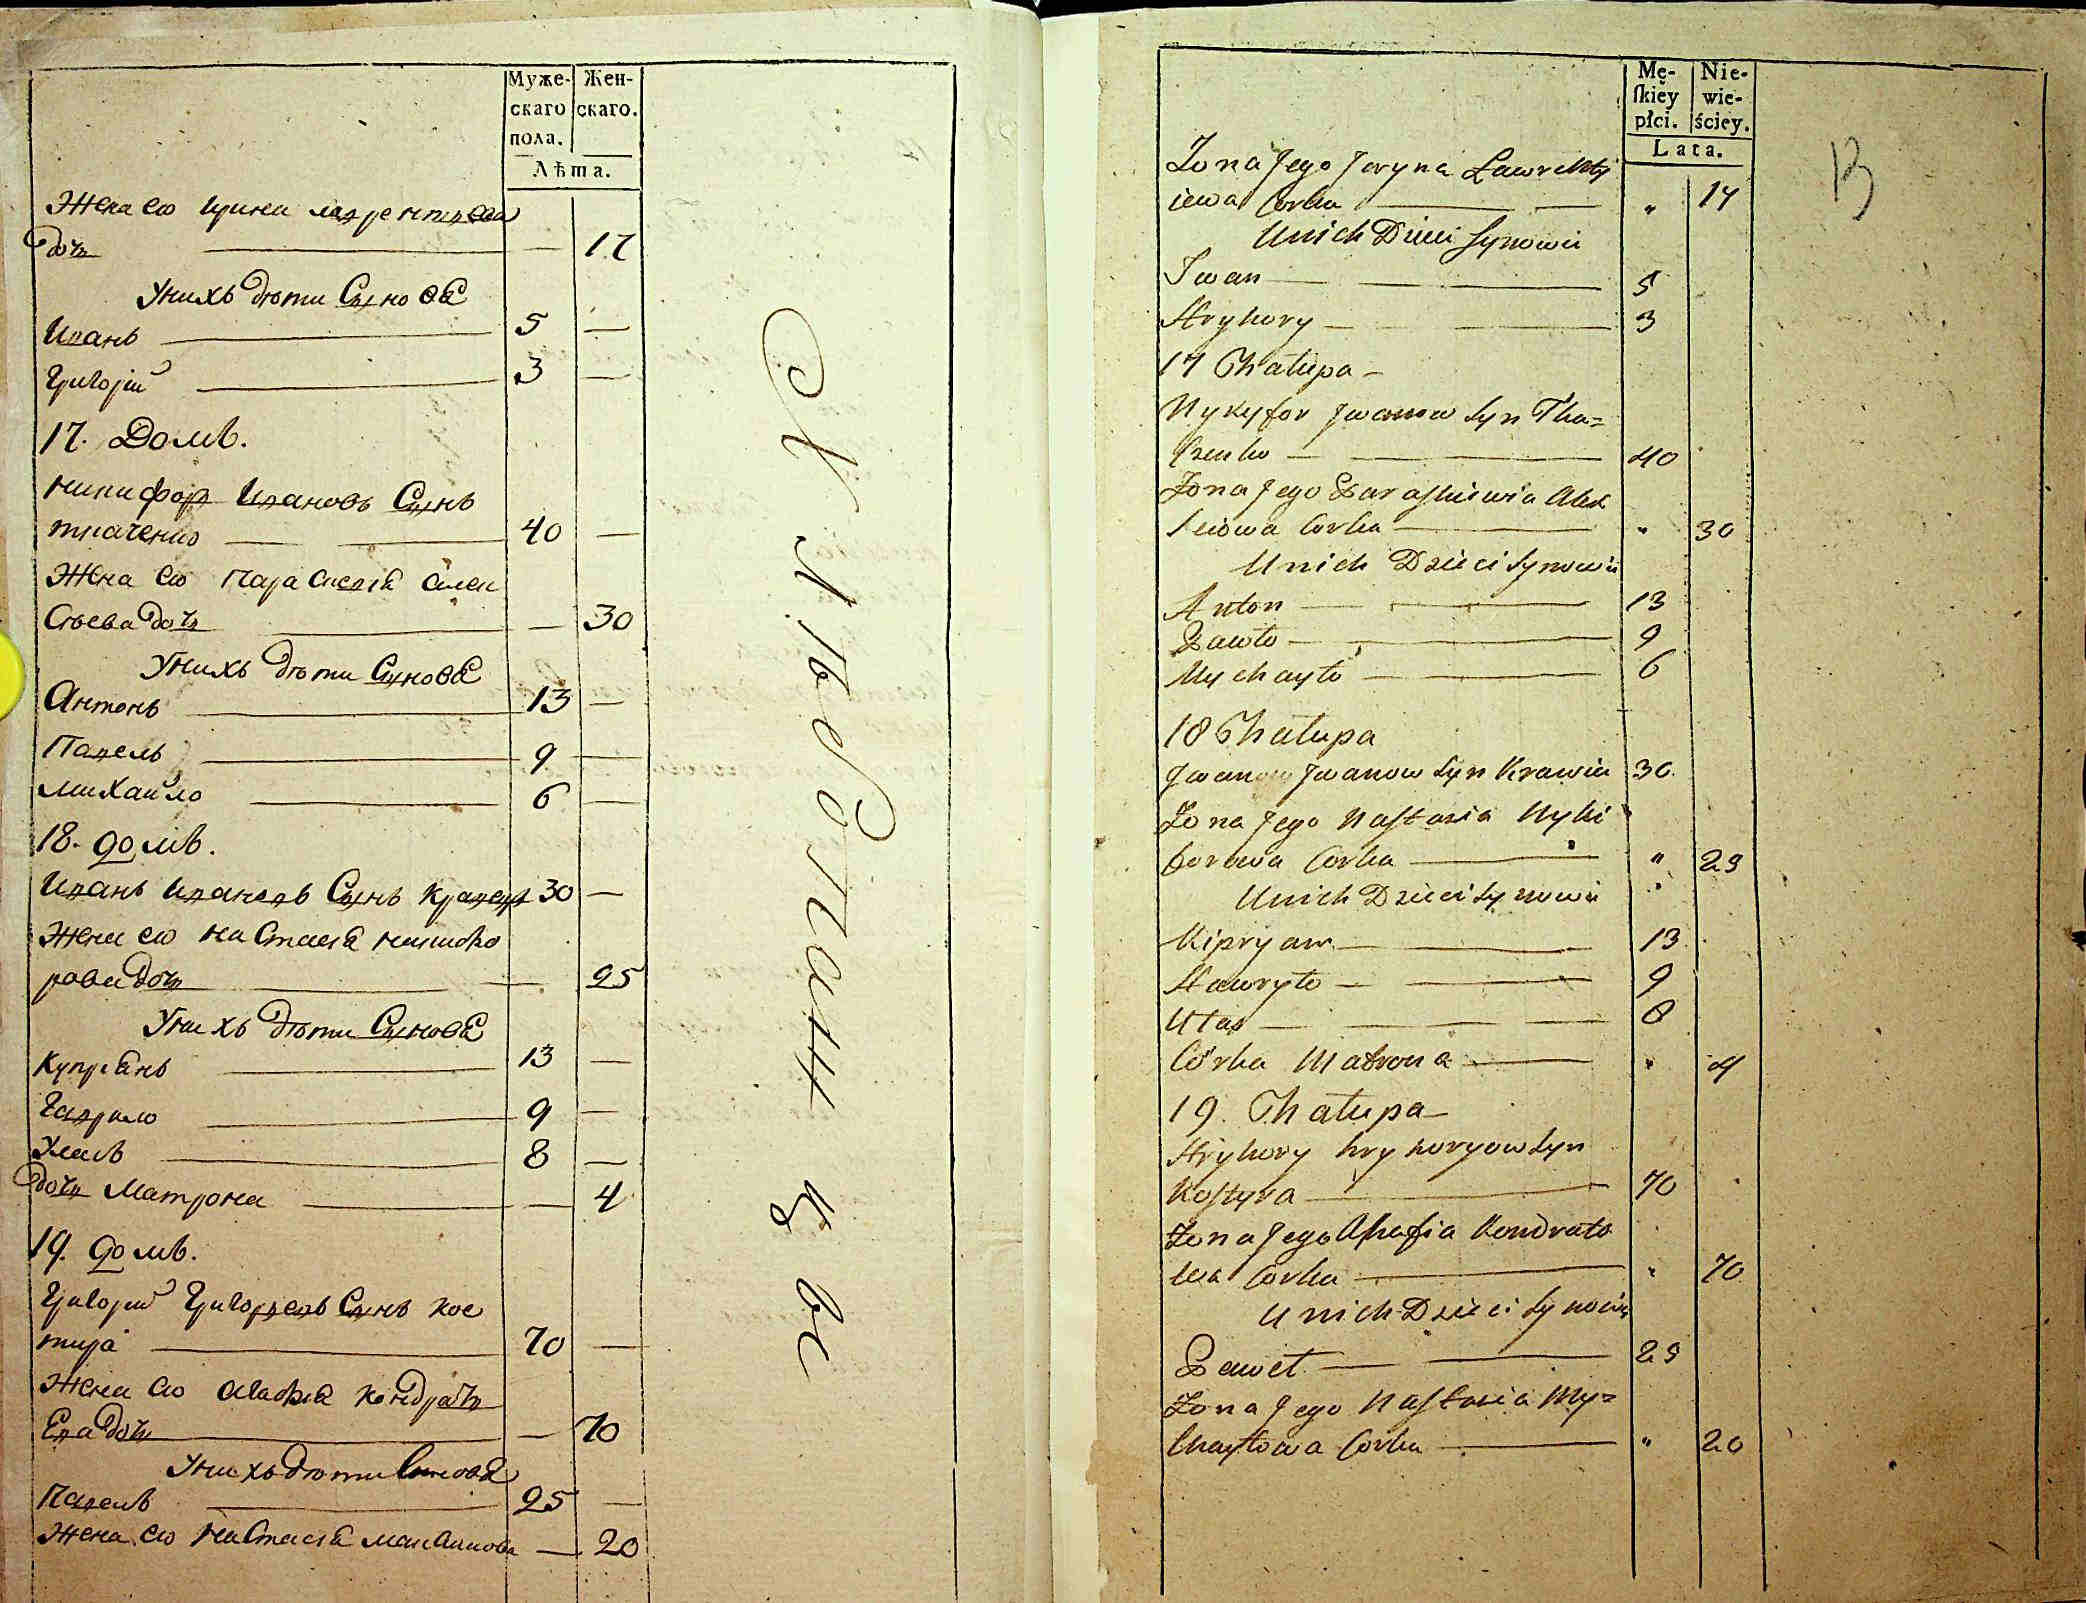 Муже-
скаго
пола.
Жен-
скаго.
Лѣта.
Жена его Ирина лаврентпева
дочь — 17
Унихъ дѣти Сынове
Иванъ — 5 —
Григорій — 3 —
17. Домъ.
Никифор Ивановъ Сынъ
ткаченко — 40 —
Жена его Параскевія алек
Сѣева дочь — 30
Унихъ дѣти Сынове
Антонъ — 13 —
Павелъ — 9 —
Михаило — 6 —
18. домъ.
Иванъ Ивановъ Сынъ Кравецъ 30 —
Жена его настасія никифо
рова дочь — 25
Унихъ дѣти Сынове
Купріянъ — 13 —
Гаврило — 9 —
Уласъ — 8 —
дочь Матрона — 4
19. домъ.
Григорій Григорьевъ Сынъ кос
тира — 70 —
Жена его агафія кондрать
ева дочь — 70
Унихъ дѣти Сынове
Павелъ — 25 —
Жена его Настасія — 20
Mę-
ſkiey
płci.
Nie-
wie-
ściey.
Lata.
13
Zona Jego Jryna Ławrenty
iewa Corka — „ 17
Unich Dzieci Synowie
Iwan — 5
Hryhory — 3
17 Chałupa —
Nykyfor Jwanow Syn Tka=
czenko — 40
Zona Jego Paraskiewia Alex
Sieiowa Corka — „ 30
Unich Dzieci Synowie
Anton — 13
Pawło — 9
Mychayło — 6
18 Chałupa
Jwanow Jwanow Syn Krawiec 30
Zona Jego Nastasia Nyki
forowa Corka — „ 25
Unich Dzieci Synowie
Kipryan — 13
Hawryło — 9
Ułas — 8
Córka Matrona — „ 4
19. Chałupa —
Hryhory hryhoryow Syn
Kostyra — 70
Zona Jego Ahafia Kondrato
wa Corka — „ 70
Unich Dzieci Synowie
Paweł — 25
Zona Jego Nastasia My=
chayłowa Corka — „ 20